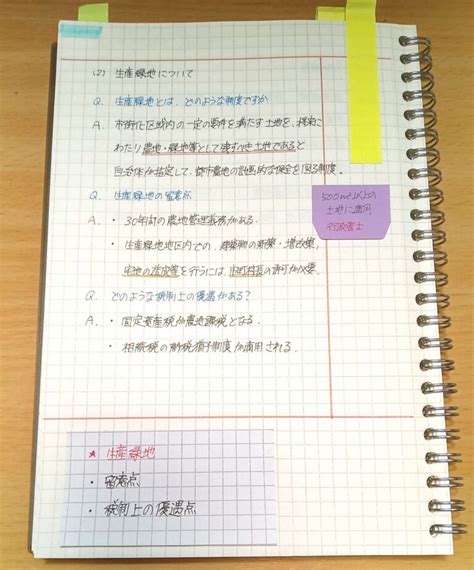 (2) 生産緑地について
Q. 生産緑地とは、どのような制度ですか
A. 市街化区域内の一定の要件を満たす土地を、将来に
わたり農地・緑地等として残すべき土地であると
自治体が指定して、都市農地の計画的な保全を図る制度。
Q. 生産緑地の留意点
A. ・30年間の農地管理義務がある。
・生産緑地地区内での、建築物の新築・増改築、
宅地の造成等を行うには、市町村長の許可が必要。
Q. どのような税制上の優遇がある?
A. ・固定資産税が農地課税となる.
・相続税の納税猶予制度が適用される.
500㎡以上の
土地に適用
行政書士
★ 生産緑地
・留意点
・税制上の優遇点